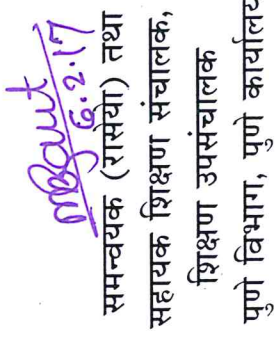 6.2.17
समन्वयक (रासेयो) तथा
सहायक शिक्षण संचालक,
शिक्षण उपसंचालक
पुणे विभाग, पुणे कार्यालय